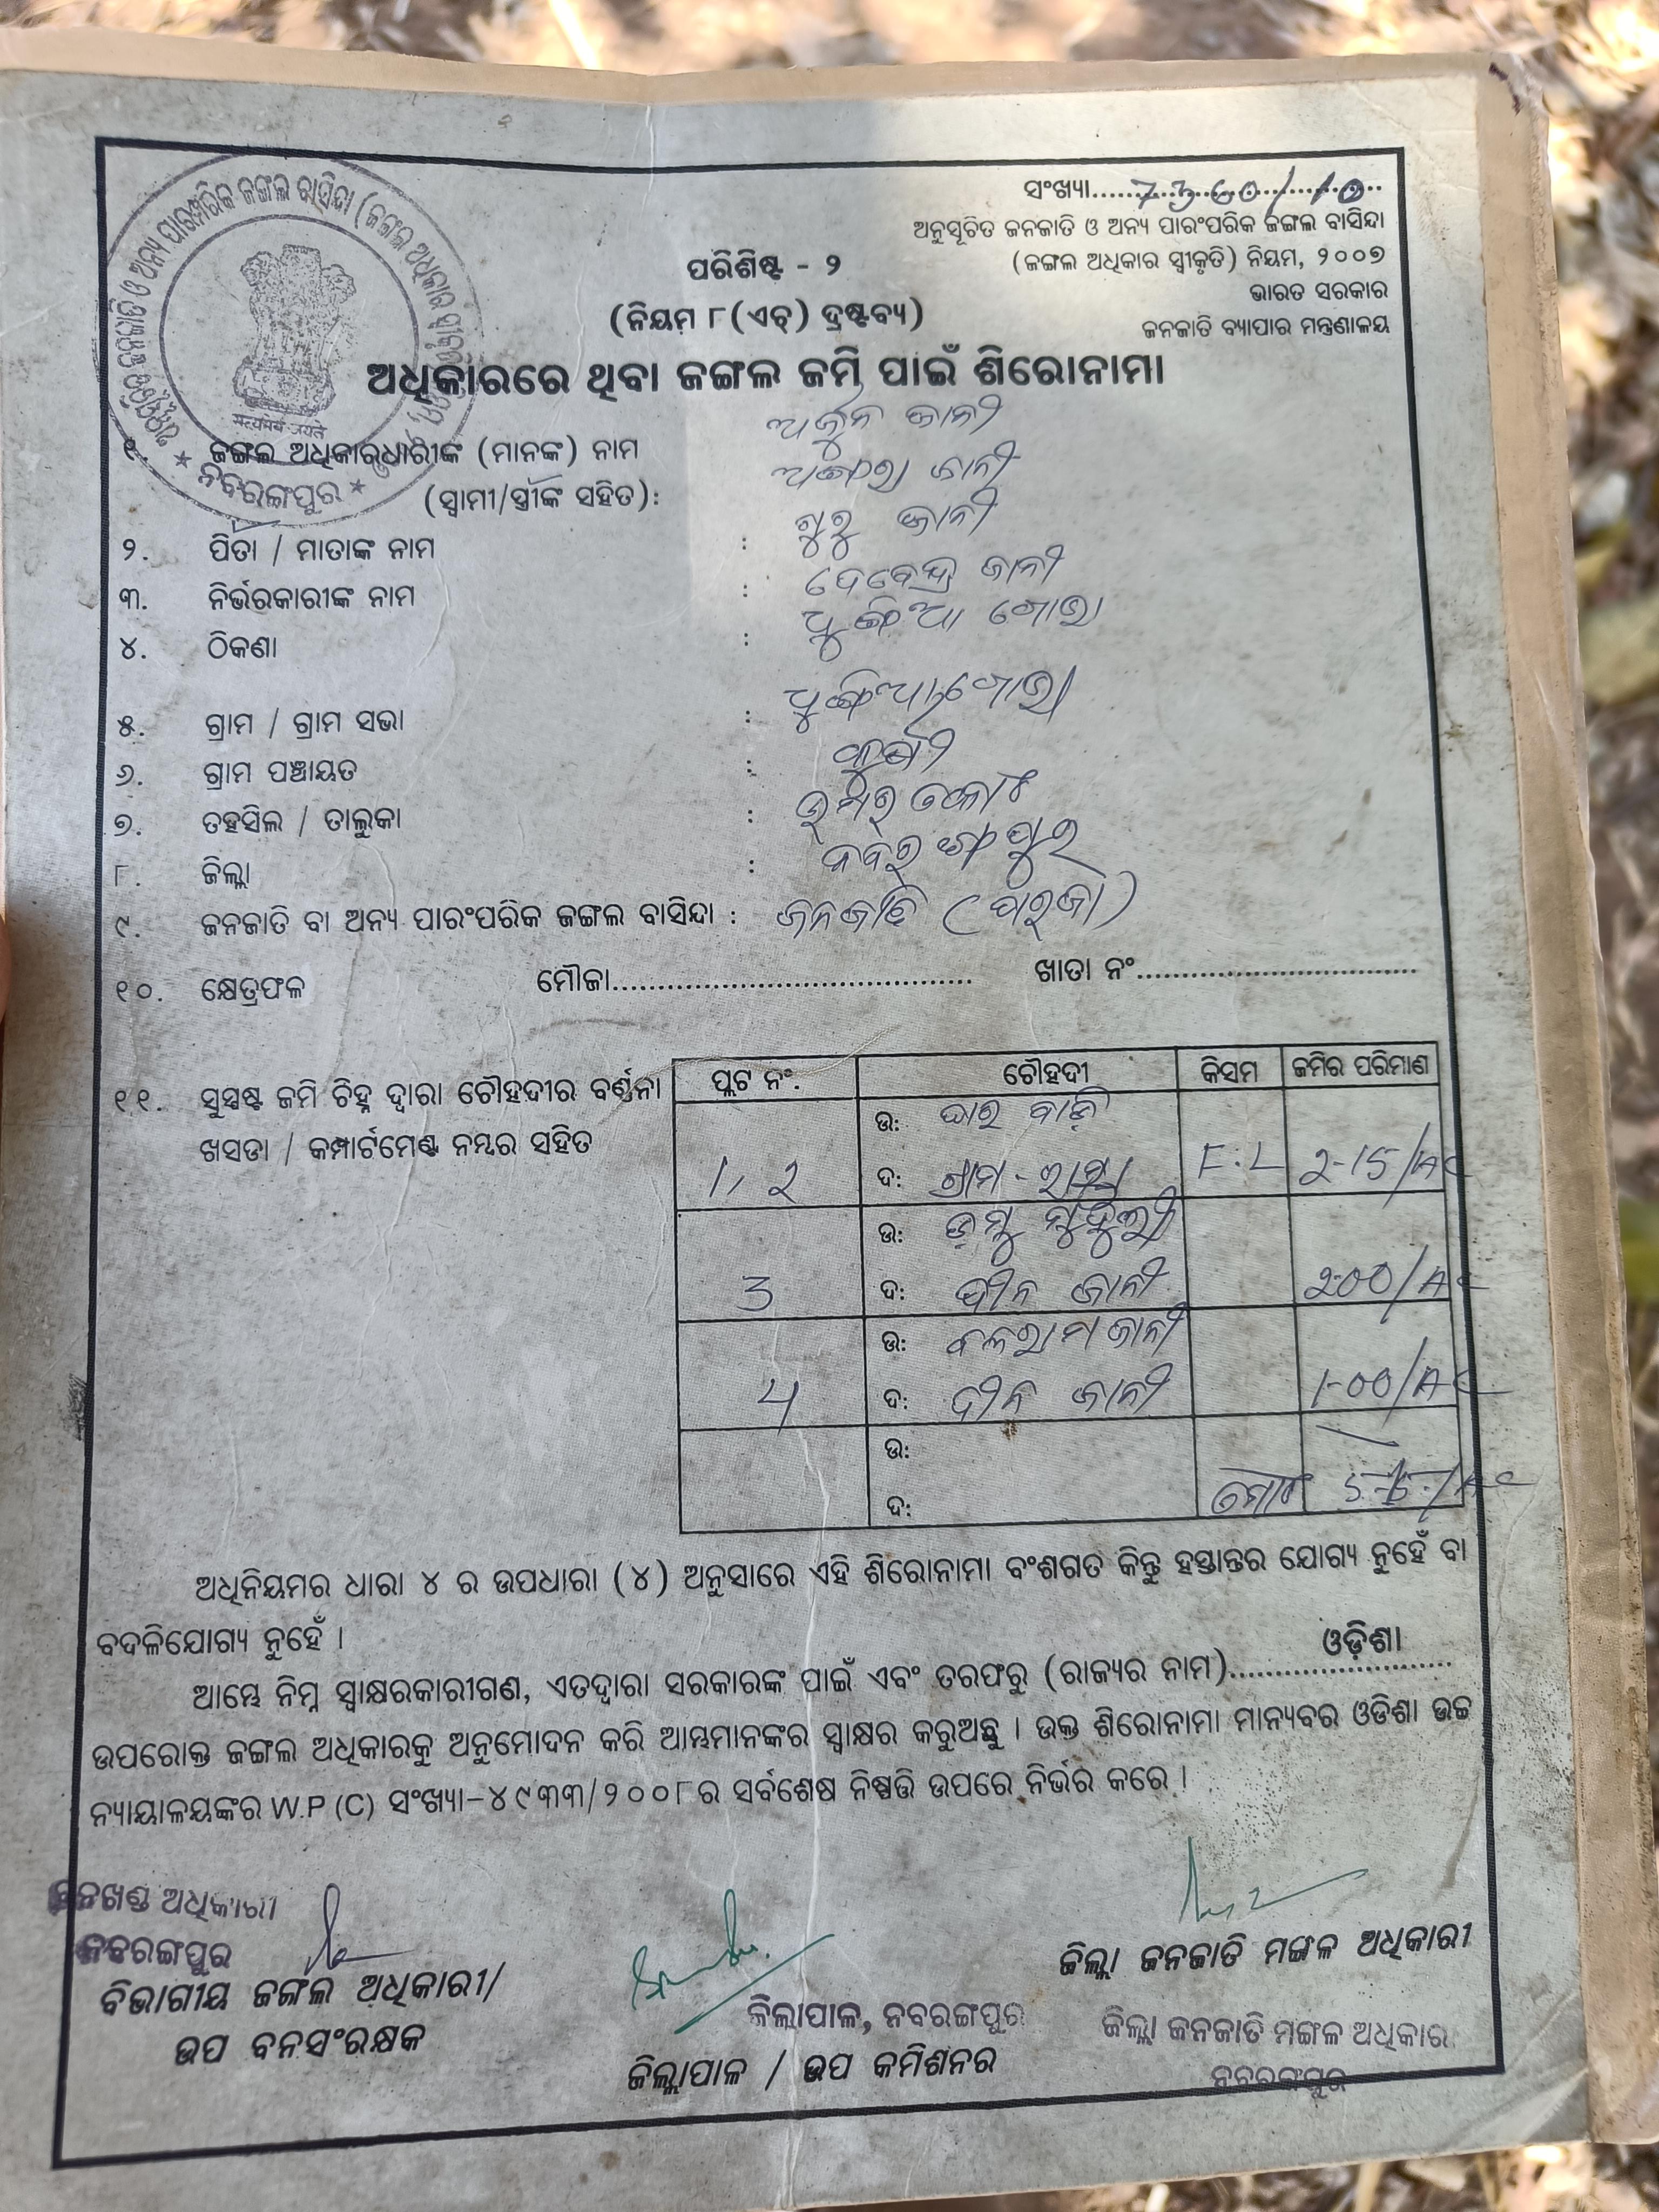 ସଂଖ୍ୟା.....7360/10
ଅନୁସୂଚିତ ଜନଜାତି ଓ ଅନ୍ୟ ପାରଂପରିକ ଜଙ୍ଗଲ ବାସିନ୍ଦା
(ଜଙ୍ଗଲ ଅଧିକାର ସ୍ୱୀକୃତି) ନିୟମ, ୨୦୦୭
ଭାରତ ସରକାର
ଜନଜାତି ବ୍ୟାପାର ମନ୍ତ୍ରଣାଳୟ
ପରିଶିଷ୍ଟ - ୨
(ନିୟମ ୮(ଏଚ୍) ଦ୍ରଷ୍ଟବ୍ୟ)
ଅଧିକାରରେ ଥିବା ଜଙ୍ଗଲ ଜମି ପାଇଁ ଶିରୋନାମା
ନବରଙ୍ଗପୁର
୧. ଜଙ୍ଗଲ ଅଧିକାରଧାରୀଙ୍କ (ମାନଙ୍କ) ନାମ ଅର୍ଜୁନ ଜାନୀ
(ସ୍ୱାମୀ/ସ୍ତ୍ରୀଙ୍କ ସହିତ): ଜାନୀ
୨. ପିତା / ମାତାଙ୍କ ନାମ : ଗୁରୁ ଜାନୀ
୩. ନିର୍ଭରକାରୀଙ୍କ ନାମ : ଦେବେନ୍ଦ୍ର ଜାନୀ
୪. ଠିକଣା :
୫. ଗ୍ରାମ / ଗ୍ରାମ ସଭା :
୬. ଗ୍ରାମ ପଞ୍ଚାୟତ :
୭. ତହସିଲ / ତାଲୁକା : ଉମରକୋଟ
୮. ଜିଲ୍ଲା : ନବରଙ୍ଗପୁର
୯. ଜନଜାତି ବା ଅନ୍ୟ ପାରଂପରିକ ଜଙ୍ଗଲ ବାସିନ୍ଦା : ଜନଜାତି (ପରଜା)
୧୦. କ୍ଷେତ୍ରଫଳ ମୌଜା..... ଖାତା ନଂ.....
୧୧. ସୁସ୍ପଷ୍ଟ ଜମି ଚିହ୍ନ ଦ୍ୱାରା ଚୌହଦୀର ବର୍ଣ୍ଣନା
ଖସଡା / କମ୍ପାର୍ଟମେଣ୍ଟ ନମ୍ବର ସହିତ
ପ୍ଲଟ ନଂ. ଚୌହଦୀ କିସମ ଜମିର ପରିମାଣ
ଉ: ଘର ବାଡ଼ି
1, 2 ଦ: ଗ୍ରାମ - ରାସ୍ତା F.L 2-15/AC
ଉ:
3 ଦ: ଜାନୀ 2-00/AC
ଉ: ବଳରାମ ଜାନୀ
4 ଦ: ଦୀନ ଜାନୀ 1-00/AC
ଉ:
ଦ: ମୋଟ 5-15/AC
ଅଧିନିୟମର ଧାରା ୪ ର ଉପଧାରା (୪) ଅନୁସାରେ ଏହି ଶିରୋନାମା ବଂଶଗତ କିନ୍ତୁ ହସ୍ତାନ୍ତର ଯୋଗ୍ୟ ନୁହେଁ ବା
ବଦଳିଯୋଗ୍ୟ ନୁହେଁ ।
ଆମ୍ଭେ ନିମ୍ନ ସ୍ୱାକ୍ଷରକାରୀଗଣ, ଏତଦ୍ୱାରା ସରକାରଙ୍କ ପାଇଁ ଏବଂ ତରଫରୁ (ରାଜ୍ୟର ନାମ).....ଓଡ଼ିଶା.....
ଉପରୋକ୍ତ ଜଙ୍ଗଲ ଅଧିକାରକୁ ଅନୁମୋଦନ କରି ଆମ୍ଭମାନଙ୍କର ସ୍ୱାକ୍ଷର କରୁଅଛୁ । ଉକ୍ତ ଶିରୋନାମା ମାନ୍ୟବର ଓଡିଶା ଉଚ୍ଚ
ନ୍ୟାୟାଳୟଙ୍କର W.P (C) ସଂଖ୍ୟା-୪୯୩୩/୨୦୦୮ର ସର୍ବଶେଷ ନିଷ୍ପତ୍ତି ଉପରେ ନିର୍ଭର କରେ ।
ବନଖଣ୍ଡ ଅଧିକାରୀ
ନବରଙ୍ଗପୁର
ବିଭାଗୀୟ ଜଙ୍ଗଲ ଅଧିକାରୀ/
ଉପ ବନସଂରକ୍ଷକ
ଜିଲାପାଳ, ନବରଙ୍ଗପୁର
ଜିଲ୍ଲାପାଳ / ଉପ କମିଶନର
ଜିଲ୍ଲା ଜନଜାତି ମଙ୍ଗଳ ଅଧିକାରୀ
ଜିଲ୍ଲା ଜନଜାତି ମଙ୍ଗଳ ଅଧିକାରୀ
ନବରଙ୍ଗପୁର